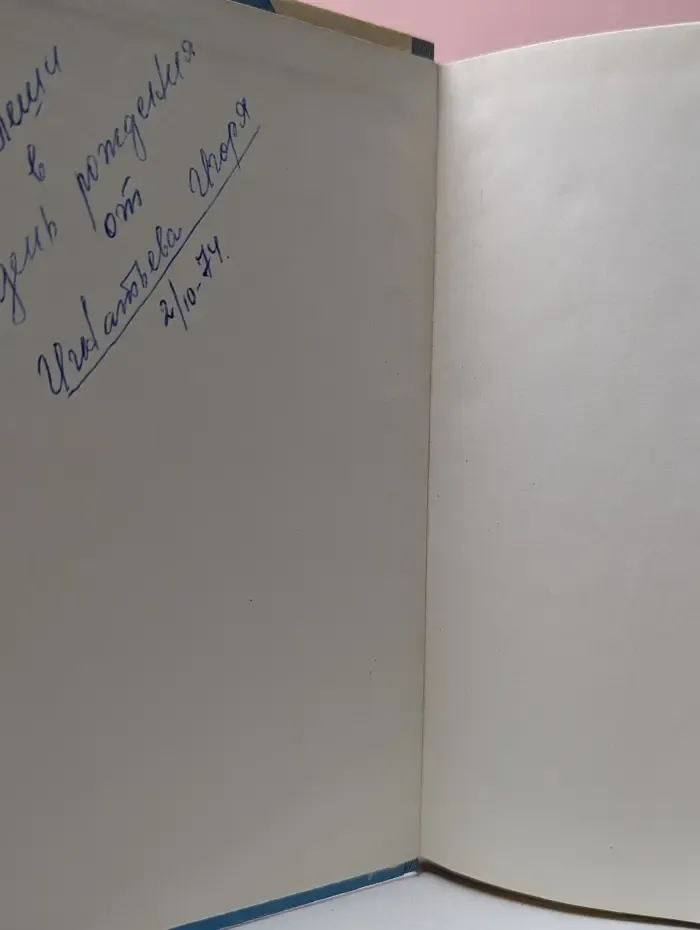 в
день рождения
от
Игнатьева Игоря
2/10-74.